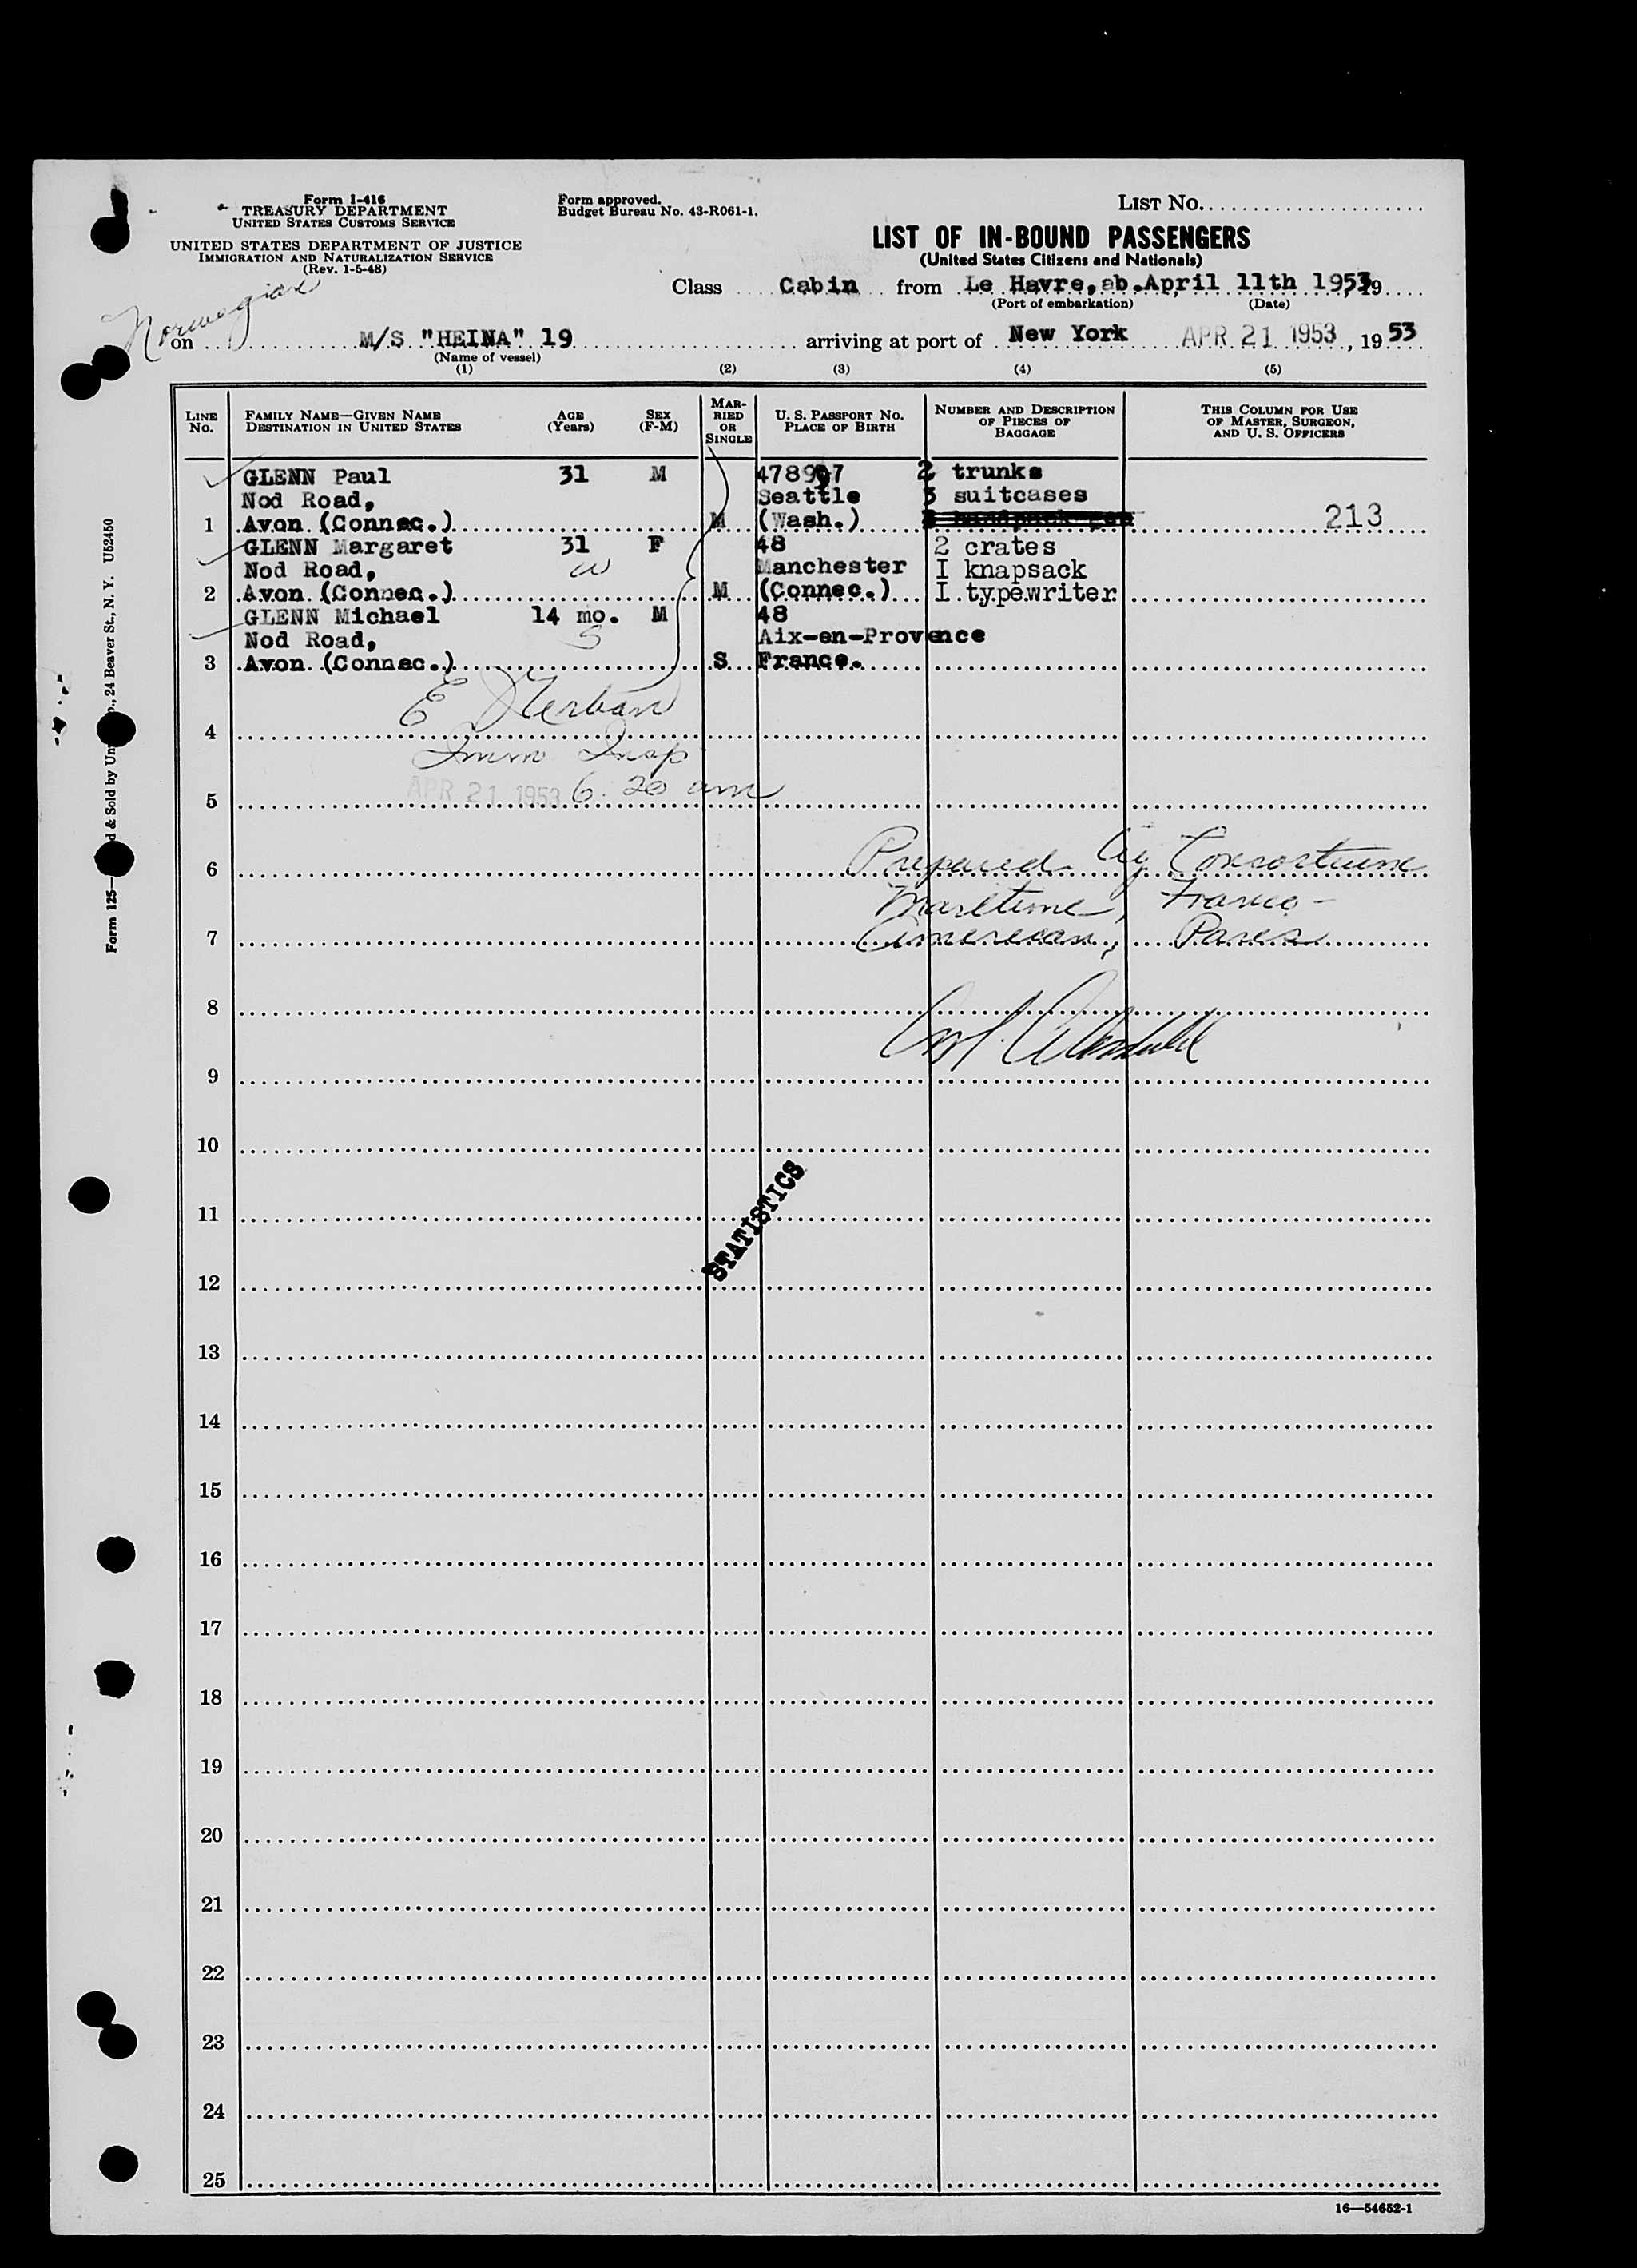 Form I-416
TREASURY DEPARTMENT
UNITED STATES CUSTOMS SERVICE
UNITED STATES DEPARTMENT OF JUSTICE
IMMIGRATION AND NATURALIZATION SERVICE
(Rev. 1-5-48)
Form approved.
Budget Bureau No. 43-R061-1.
LIST NO.
LIST OF IN-BOUND PASSENGERS
(United States Citizens and Nationals)
Class Cabin from Le Havre, ab. April 11th 1953, 19
(Port of embarkation) (Date)
Norwegian
on M/S "HEINA" 19 arriving at port of New York APR 21 1953, 19 53
(Name of vessel)
(1) (2) (3) (4) (5)
LINE No. FAMILY NAME—GIVEN NAME DESTINATION IN UNITED STATES AGE (Years) SEX (F-M) MARRIED OR SINGLE U. S. PASSPORT NO. PLACE OF BIRTH NUMBER AND DESCRIPTION OF PIECES OF BAGGAGE THIS COLUMN FOR USE OF MASTER, SURGEON, AND U. S. OFFICERS
GLENN Paul 31 M 2 trunks
Nod Road, Seattle 3 suitcases
1 Avon (Connec.) M (Wash.) 213
GLENN Margaret 31 F 48 2 crates
Nod Road, W Manchester I knapsack
2 Avon (Connec.) M (Connec.) I typewriter
GLENN Michael 14 mo. M 48
Nod Road, S Aix-en-Provence
3 Avon (Connec.) S France.
E
4
Imm Insp
5 APR 21 1953 6:20 am
6 Prepared by Consortium
Maritime, Franco-
7 American, Paris
8
9
10
11
STATISTICS
12
13
14
15
16
17
18
19
20
21
22
23
24
25
16—54652-1
Form 125— d & Sold by Un ., 24 Beaver St., N. Y. U52450